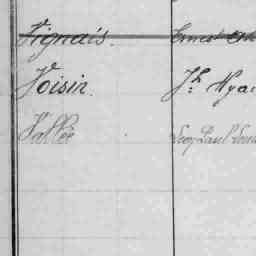 Vignais. Ernest
Voisin. Jh. Hya
Vallée Leon Paul